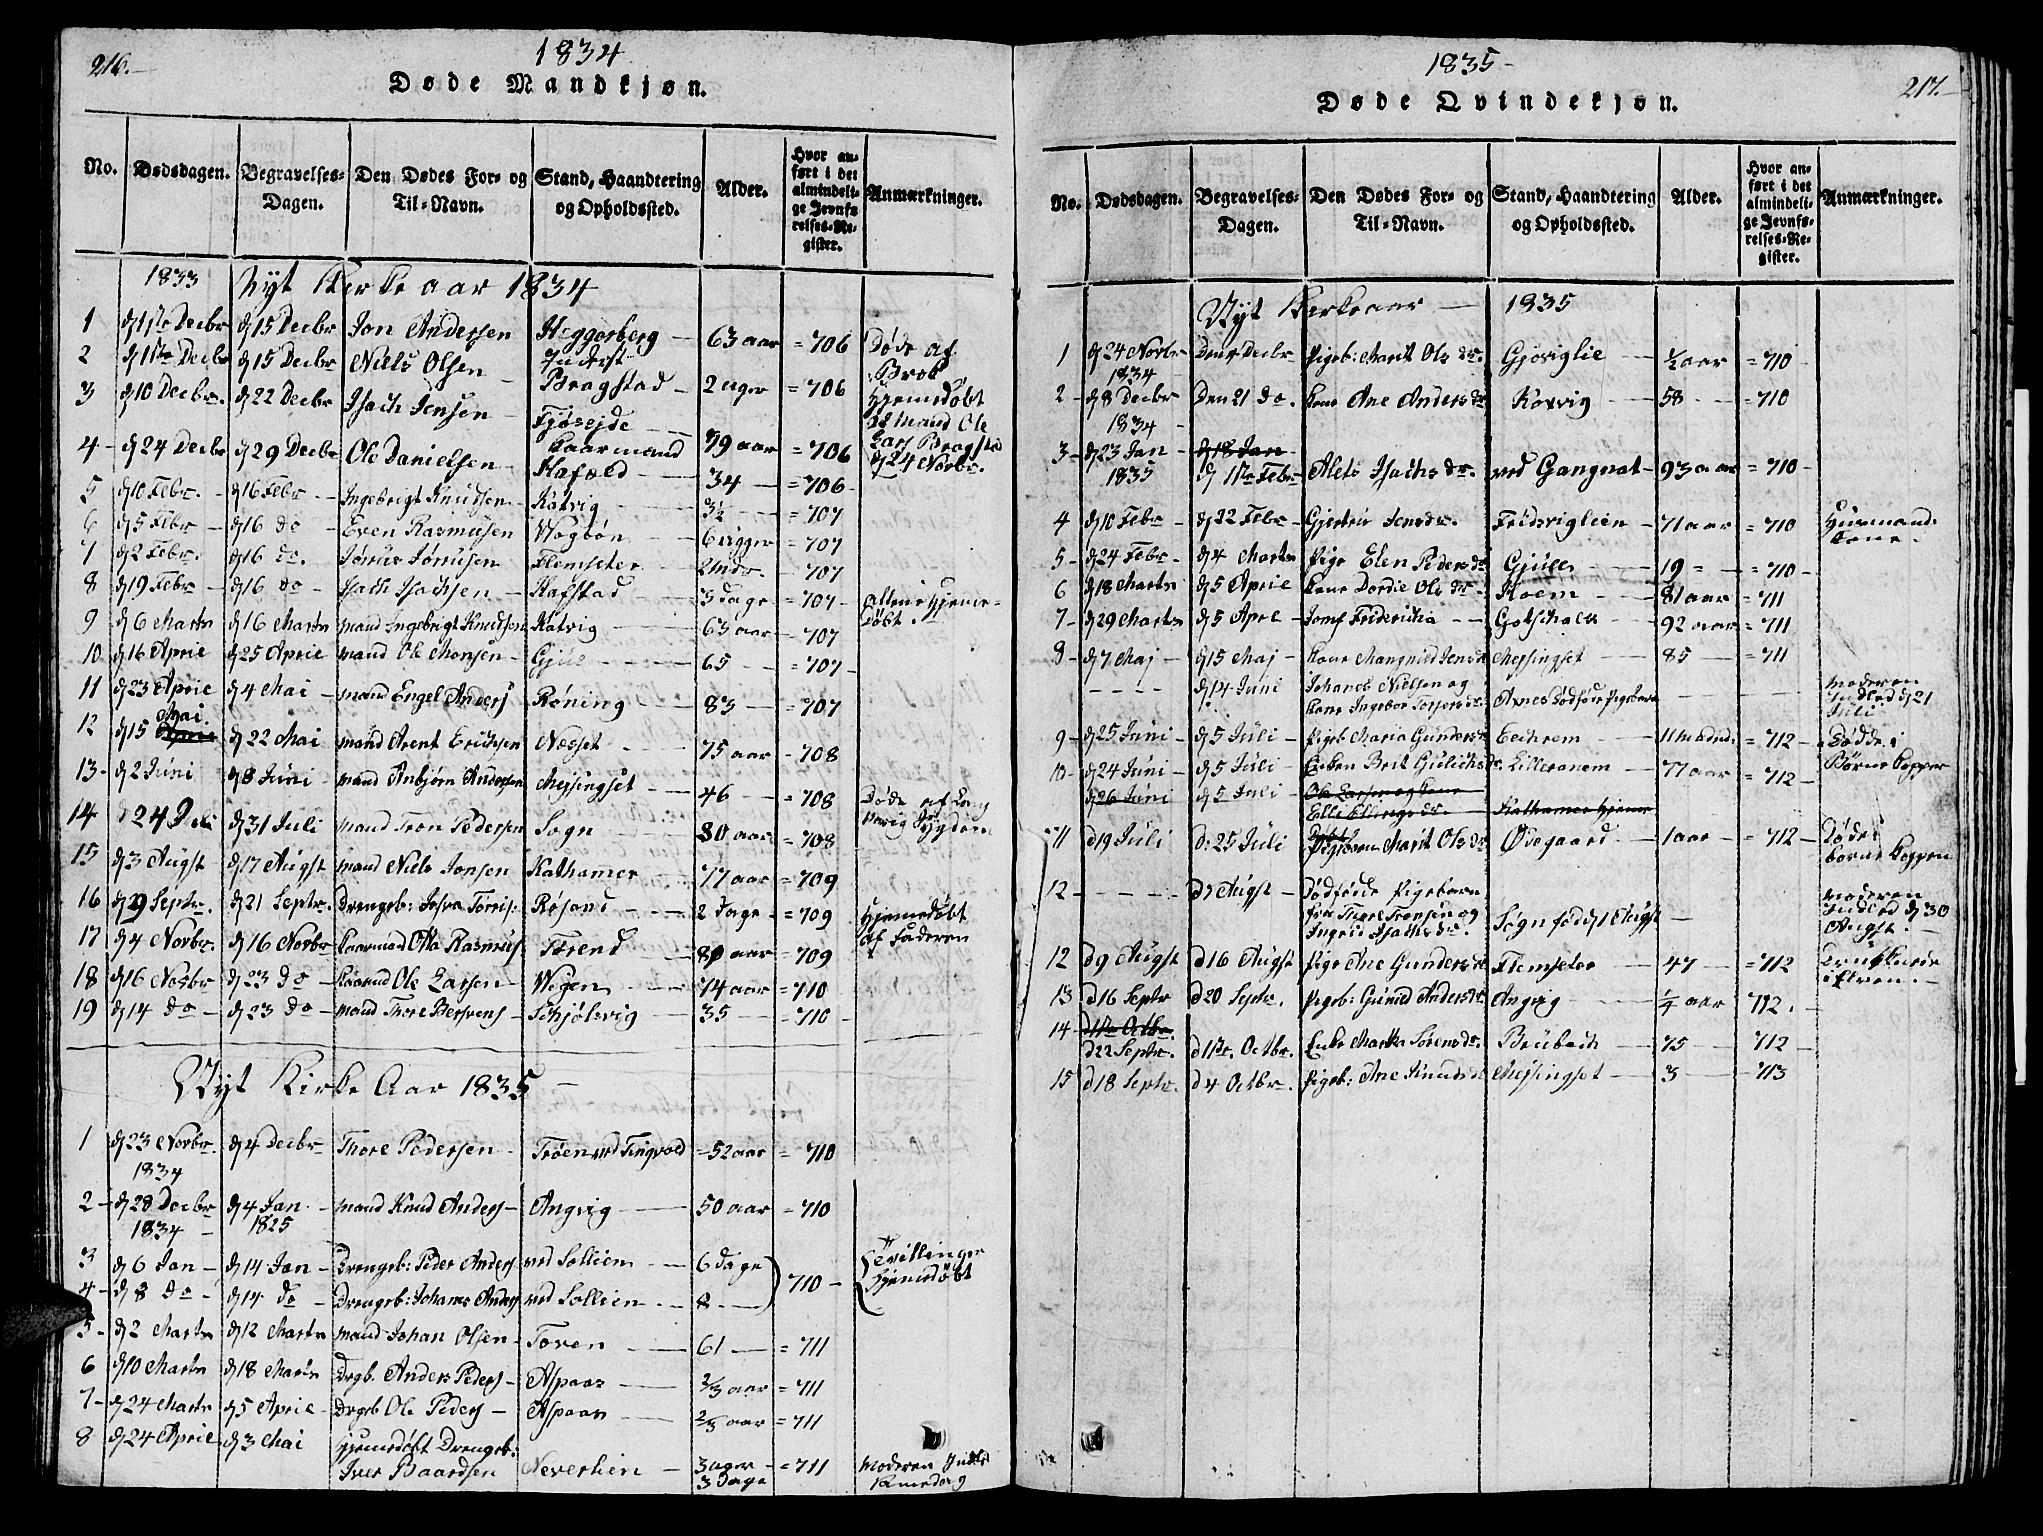 216.
1834
Døde Mandkjøn.
No. Dødsdagen. Begravelses-Dagen. Den Dødes For- og Til-Navn. Stand, Haandtering og Opholdssted. Alder. Hvor anført i det almindelige Jevnførelses-Register. Anmærkninger.
1833 Nyt Kirke aar 1834
1 d 1ste Decbr d 15 Decbr Jon Andersen Heggerberg 63 aar = 706 Døde af Brok
2 d 11te Decbr d 15 Decbr Niels Olsen Inderst Bragstad 2 uger = 706 Hjemedøbt
3 d 10 Decbr. d 22 Decbr Isach Jensen Fjøseide 79 aar = 706 d 24 Novbr.
4 d 24 Decbr d 29 Decbr Ole Danielsen Kaarmand Hafold 34 = 706
5 d 10 Febr. d 16 Febr Ingebrigt Knudsen Katvig 3½ = 707
6 d 5 Febr d 16 do Even Rasmusen Wogbøn 6 uger = 707
7 d 2 Febr. d 16 do. Flemseter = 707
8 d 19 Febr d 16 do Isach Isachsen Kafstad 3 dage = 707
9 d 6 Martn d 16 Martn mand Ingebrigt Knudsen Katvig 63 aar = 707
10 d 16 Aprie d 25 Aprie mand Ole Monsen Gjul 65 = 707
11 d 23 Aprie d 4 Mai mand Engel Anders Røning 83 = 707
12 d 15 Mai. d 22 Mai mand Arent Erichsen Næsset 75 aar = 708
13 d 2 Juni d 8 Juni mand Anbjørn Andersen Meisingset 46 = 708
14 d 24 Juli d 31 Juli mand Tron Pedersen Sogn 80 aar = 708 Døde af Langvarig Sygdom
15 d 3 Augst d 17 Augst mand Niels Jonsen Kathamer 77 aar = 709
16 d 9 Septr. d 21 Septr. Drengeb: Rosand 2 Dage = 709 Hjemedøbt af Faderen
17 d 4 Novbr. d 16 Novbr Otta Rasmus: Torend 80 aar = 709
18 d 16 Novbr d 23 do Ole Larsen Wogen 74 aar = 710
19 d 14 do d 23 do mand Thore Bersvens Schjølsvig 35 = 710
Nyt Kirke Aar 1835
1 d 23 Novbr. 1834 d 4 Decbr Thore Pedersen Trøen ved Tingvold 52 aar = 710
2 d 28 Decbr 1834 d 4 Jan 1825 mand Knud Anders Angvig 50 aar = 710
3 d 6 Jan d 14 Jan Drengeb: Peder Anders ved Sollien 6 dage 710 Tvillinger Hjemedøbt
4 d 8 do d 14 do Drengeb: Johanes Anders ved Sollien 8
5 d 2 Martn d 12 Martn mand Johan Olsen Toven 61 = 711
6 d 10 Martn d 18 Martn Drgb. Anders Peders Aspaas ⅔ aar = 711
7 d 24 Martn d 5 Aprie Drgeb Ole Peders Aspaas aar = 711
8 d 24 Aprie d 3 Mai Hjemedøbt Drengeb: Iver Baardsen Neverlien 3 uger 3 Dage = 711 Moderen
1835
217.
Døde Qvindekjøn.
No. Dødsdagen. Begravelses-Dagen. Den Dødes For- og Til-Navn. Stand, Haandtering og Opholdssted. Alder. Hvor anført i det almindelige Jevnførelses-Register. Anmærkninger.
Nyt Kirkeaar 1835
1 d 24 Novbr 1834 Den 4 Decbr Pigeb: Marit Ols dr. Gjøviglie ½ aar = 710
2 d 8 Decbr 1834 Den 21 do. Kone Ane Anders dr Korsvig 58 = 710
3 d 23 Jan 1835 d 18 Jan d 1ste Febr Alets Isachs dr. ved Gangnat 93 aar = 710
4 d 10 Febr d 22 Febr Gjertrui Jensdr. Fridsviglien 71 aar = 710 Huusmands Kone.
5 d 24 Febr d 4 Martn Pige Elen Pedersdr Gjull 19 = 710
6 d 18 Martn d 5 Aprie Kone Dordie Ols dr Hoem 81 aar = 711
7 d 29 Martn d 5 Apre Jomf Fridericha Gotschalck 92 aar = 711
8 d 7 Maj d 15 Maj Kone Magnild Jensdr Mejsingset 85 = 711
d 14 Juni Johanes Nielsen og Kone Ingebor Axnes dødfødt Pigebarn Moderen Indled d 21 Juli
9 d 25 Juni d 5 Juli Pigeb Maria Gundersdr Eechrem 11 maand. = 712 Døde i Børne Kopper
10 d 24 Juni d 5 Juli Enken Brit Gulichs dr. Lilleranem 77 aar = 712
d 26 Juni d 5 Juli Ole Larsen og Kone Elli Ellings dr. Kathamer Hjemme
11 d 19 Juli d: 25 Juli Pigebarn Marit Ols dr Ødegaard 1 aar = 712 Døde børne Koppen
12 d Augst Dødfødde Pigebarn fra Thore Tronsen og Ingrid Isachsdr. Sogn fød d 1 Augst Moderen Indled d 30 Augst.
12 d 9 Augst d 16 Augst Pige Ane Gundersdr Flemseter 47 = 712
13 d 16 Septr d 20 Septr. Pigeb: Gunild Andersdr Angvig ¼ aar 712.
14 d 11te Octbr. d 22 Septr. d 11te. Octbr. Enke Marta Sørensdr. Breibech 75 712
15 d 18 Septr. d 4 Octbr. Pigeb: Ane Knudsdr Mejsingset 3 713